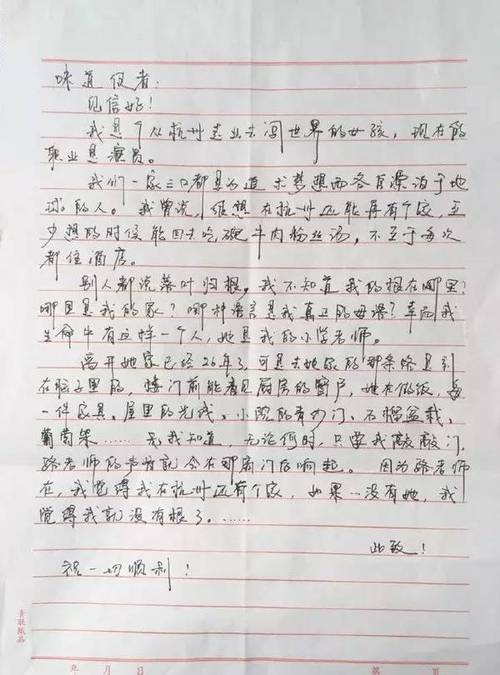 味道使者:
见信好!
我是个从杭州走出去闯世界的女孩,现在的
职业是演员。
我们一家三口都是为追求梦想而各自漂泊于地
球的人。我曾说,很想在杭州还能再有个家,至
少想的时候能回去吃碗牛肉粉丝汤,不至于每次
都住酒店。
别人都说落叶归根,我不知道我的根在哪里?
哪里是我的家?哪种语言是我真正的母语?幸而我
生命中有这样一个人,她是我的小学老师。
离开她家已经26年了,可是去她家的那条路是刻
在脑子里的,楼门前能看见厨房的窗户,她在做饭,每
一件家具、屋里的光线、小院的移门、石榴盆栽、
葡萄架……我知道,无论何时,只要我敲敲门,
骆老师的声音就会在那扇门后响起。因为骆老师
在,我觉得我在杭州还有个家,如果…没有她,我
觉得我就没有根了。……
此致!
祝一切顺利!
青联纸品
年 月 日 第 页